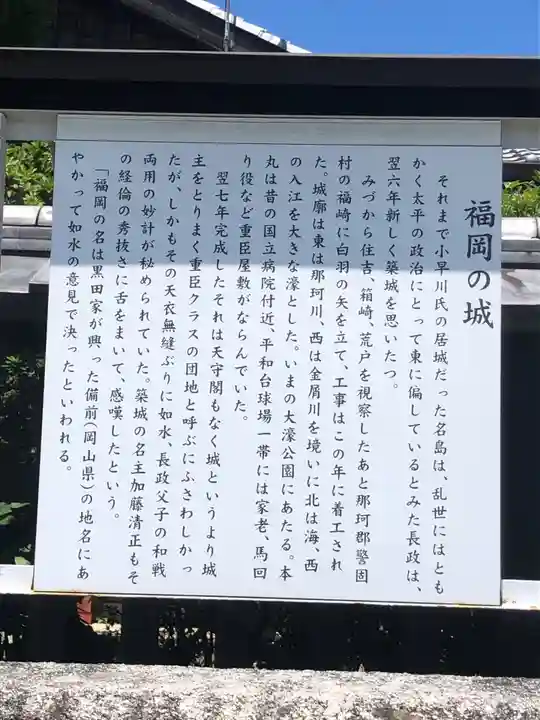 福岡の城
それまで小早川氏の居城だった名島は、乱世にはとも
かく太平の政治にとって東に偏しているとみた長政は、
翌六年新しく築城を思いたつ。
みづから住吉、箱崎、荒戸を視察したあと那珂郡警固
村の福崎に白羽の矢を立て、工事はこの年に着工され
た。城廓は東は那珂川、西は金屑川を境いに北は海、西
の入江を大きな濠とした。いまの大濠公園にあたる。本
丸は昔の国立病院付近、平和台球場一帯には家老、馬回
り役など重臣屋敷がならんでいた。
翌七年完成したそれは天守閣もなく城というより城
主をとりまく重臣クラスの団地と呼ぶにふさわしかっ
たが、しかもその天衣無縫ぶりに如水、長政父子の和戦
両用の妙計が秘められていた。築城の名主加藤清正もそ
の経倫の秀抜さに舌をまいて、感嘆したという。
「福岡の名は黒田家が興った備前(岡山県)の地名にあ
やかって如水の意見で決ったといわれる。